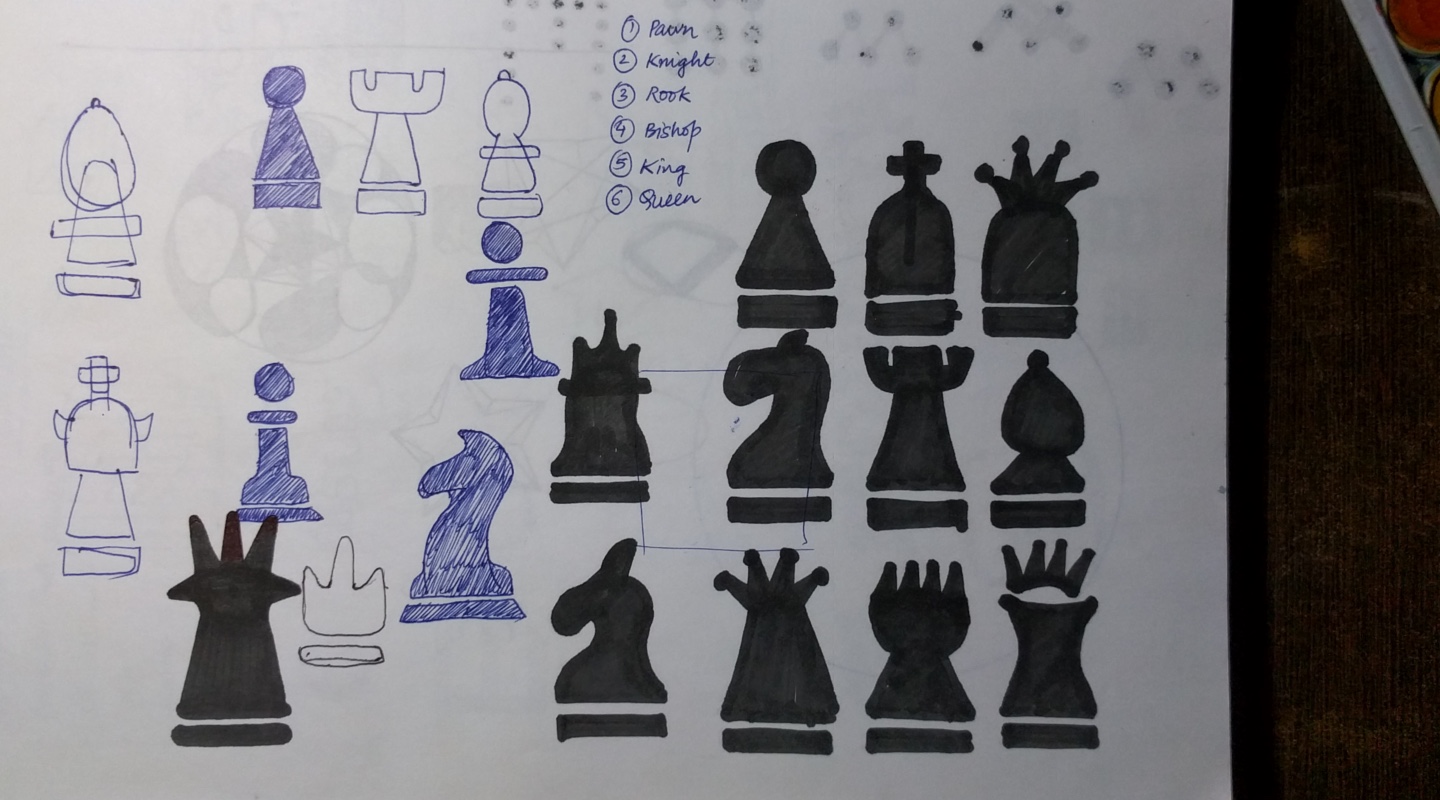 ① Pawn
② Knight
③ Rook
④ Bishop
⑤ King
⑥ Queen